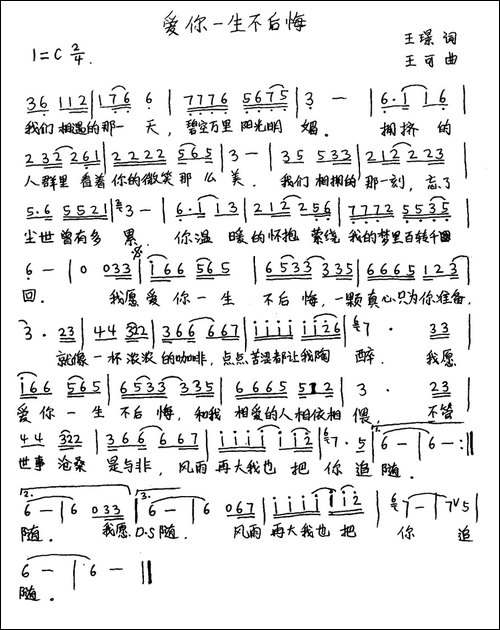 爱你一生不后悔
1=C 2/4.
王璟 词
王可 曲
36 112 | 176 6 | 7776 5675 | 3 — | 6·1 16
我们相遇的那一天，碧空万里 阳光明媚。拥挤的
232 261 | 2222 565 | 3 — | 35 533 | 212 223
人群里 看着你的微笑那么美．我们相拥的那一刻，忘了
5·6 5521 | 3 — | 6·1 13 | 212 256 | 7772 5535
尘世曾有多累．你温暖的怀抱 萦绕 我的梦里百转千回
6 — | 0 033 | i66 565 | 6533 335 | 6665 123
回．我愿爱你一生不后悔，一颗真心只为你准备．
3· 23 | 44 322 | 366 667 | iiii ii26 | 7· 33
就像一杯浓浓的咖啡，点点苦涩都让我陶醉．我愿
i66 565 | 6533 335 | 6665 512 | 3· 23
爱你一生不后悔，和我相爱的人相依相偎．不管
44 322 | 366 667 | iiii ii2 | 7· 5 | 1. 6 — | 6 — :||
世事沧桑是与非，风雨再大我也把你追随．
2. 6 — | 6 033 | 3. 6 — | 6 067 | iiii ii2 | 7 — | 7 V 5
随．我愿．D.S随．风雨再大我也把你追
6 — | 6 — ||
随．